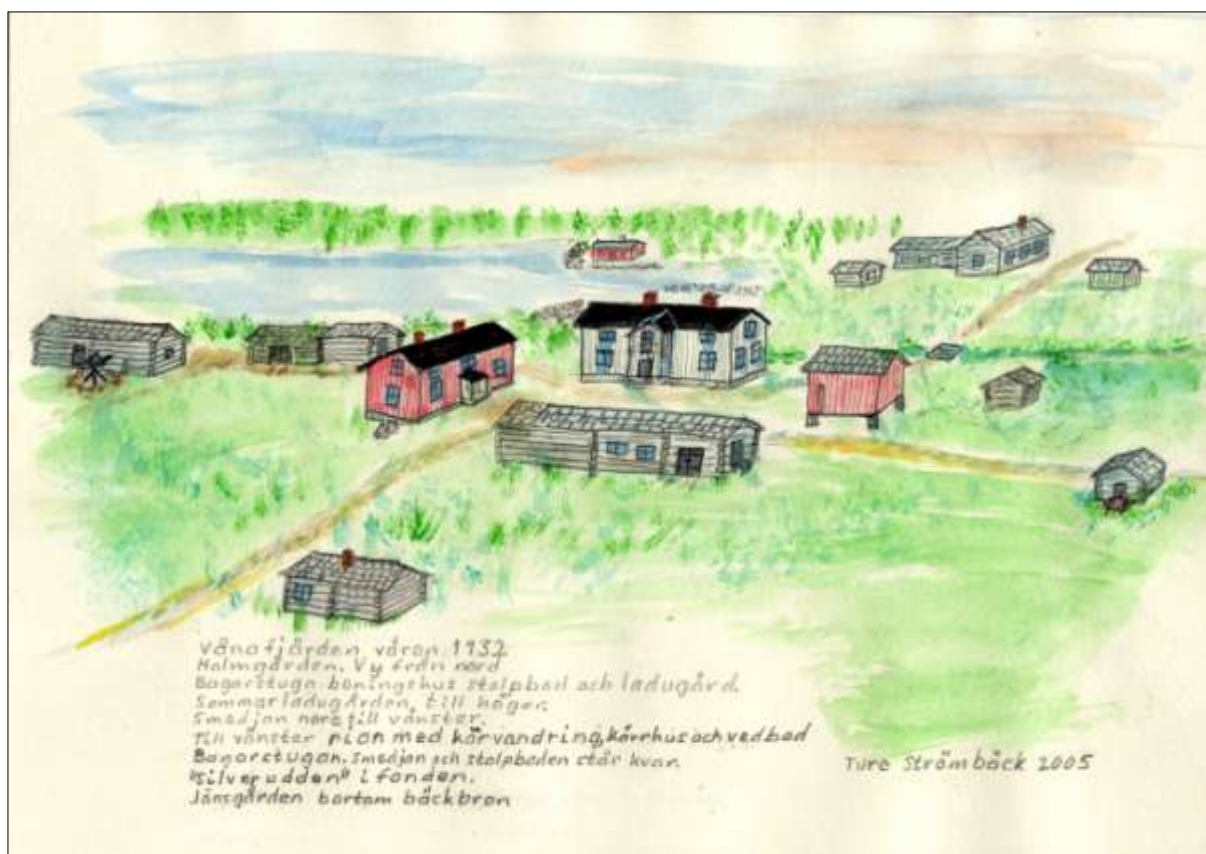 Vånafjärden våren 1932
Holmgården. Vy från nord
Bagarstugn boningshus stolpbod och ladugård.
Sommarladugården, till höger.
Smedjan nere till vänster.
Till vänster rian med körvandring, kärrhus och vedbod
Bagarstugan. Smedjan och stolpboden står kvar.
"Silverudden" i fonden.
Jånsgården bortom bäckbron
Ture Strömbäck 2005